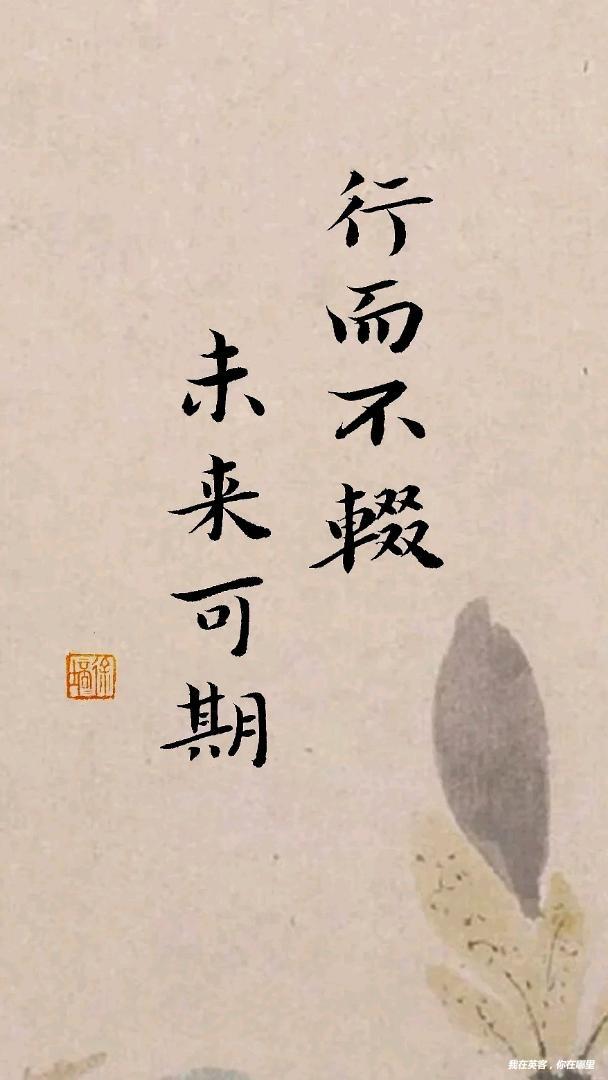 行而不輟
未来可期
我在英客，你在哪里